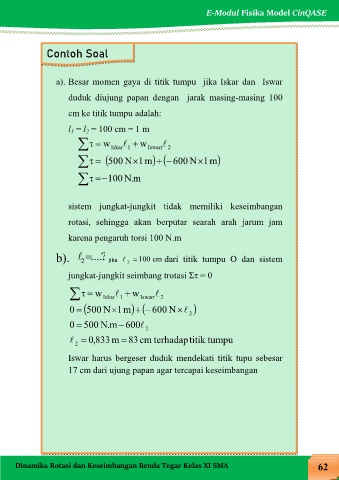 E-Modul Fisika Model CinQASE
Contoh Soal
a). Besar momen gaya di titik tumpu jika Iskar dan Iswar
duduk diujung papan dengan jarak masing-masing 100
cm ke titik tumpu adalah:
l₁ = l₂ = 100 cm = 1 m
∑τ = w Iskar ℓ 1 + w Iswarr ℓ 2
∑τ = (500 N × 1 m) + (− 600 N × 1 m)
∑τ = −100 N.m
sistem jungkat-jungkit tidak memiliki keseimbangan
rotasi, sehingga akan berputar searah arah jarum jam
karena pengaruh torsi 100 N.m
b). ℓ₂ =....? jika ℓ 2 = 100 cm dari titik tumpu O dan sistem
jungkat-jungkit seimbang trotasi Στ = 0
∑τ = w Iskar ℓ 1 + w Iswarr ℓ 2
0 = (500 N × 1 m) + (− 600 N × ℓ 2)
0 = 500 N.m − 600ℓ 2
ℓ 2 = 0,833 m = 83 cm terhadap titik tumpu
Iswar harus bergeser duduk mendekati titik tupu sebesar
17 cm dari ujung papan agar tercapai keseimbangan
Dinamika Rotasi dan Keseimbangan Benda Tegar Kelas XI SMA 62